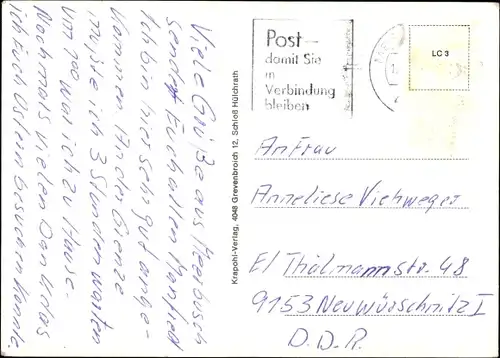 Viele Grüße aus Meerbusch
sendet Euch allen Manfred
Ich bin hier sehr gut ange-
kommen. An der Grenze
mußte ich 3 Stunden warten
um 1⁰⁰ war ich zu Hause.
Nochmals vielen Dank das
ich Euch Ostern besuchen konnte.
Krapohl-Verlag, 4048 Grevenbroich 12, Schloß Hülchrath
Post –
damit Sie
in
Verbindung
bleiben
LC 3
An Frau
Anneliese Viehweger
El Thälmannstr. 48
9153 Neuwürschnitz I
D.D.R.